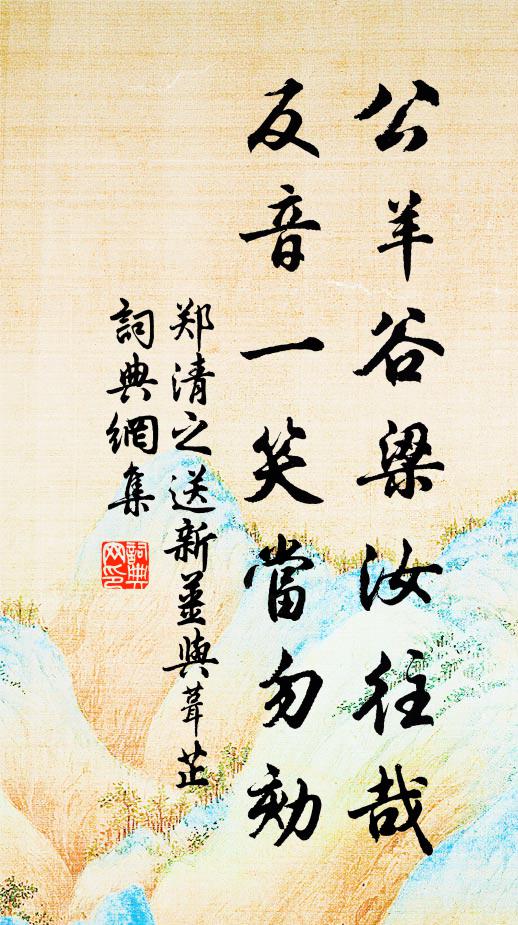 公羊谷梁汝往哉
反音一笑當勿劾
郑清之送新薑與葺芷
詞典網集
詞典网印